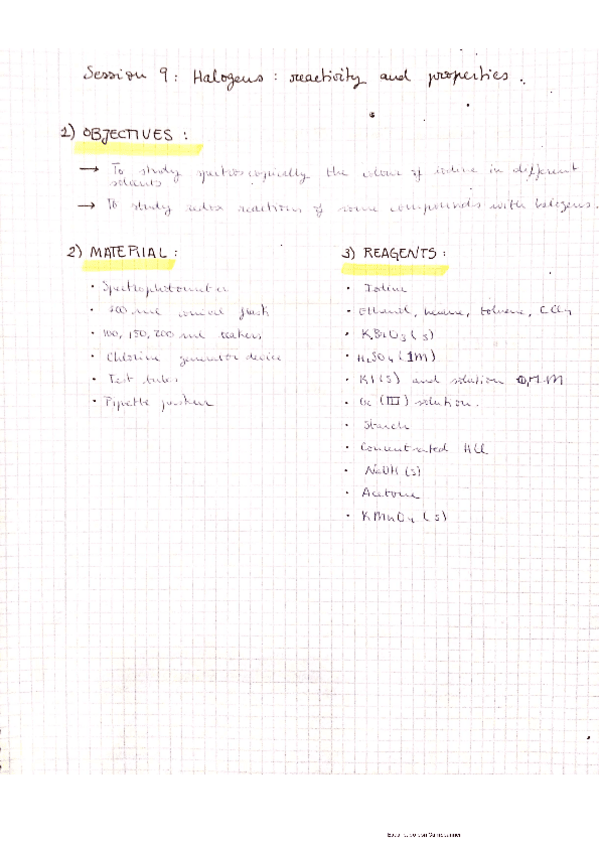 Session 9: Halogens: reactivity and properties.
1) OBJECTIVES:
→ To study spectroscopically the colour of iodine in different
solvents
→ To study redox reactions of some compounds with halogens.
2) MATERIAL:
• Spectrophotometer
• 100, 150, 200 ml beakers
• Chlorine generator device
• Test tubes
• Pipette pasteur
3) REAGENTS:
• Iodine
• Ethanol, hexane, toluene, CCl4
• KBrO3 (s)
• H2SO4 (1M)
• KI (s) and solution
• (III) solution.
• Starch
• Concentrated HCl
• NaOH (s)
• Acetone
• KMnO4 (s)